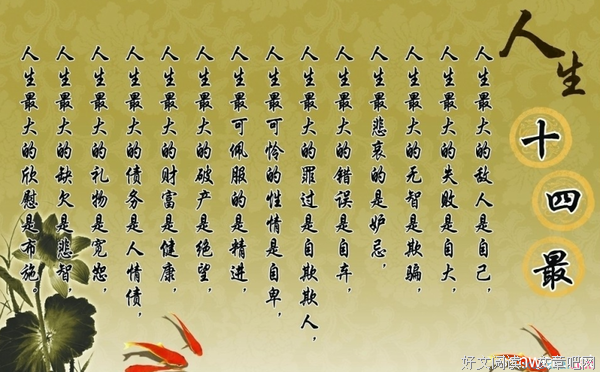 人生
十四最
人生最大的敌人是自己，
人生最大的失败是自大，
人生最大的无智是欺骗，
人生最悲哀的是妒忌，
人生最大的错误是自弃，
人生最大的罪过是自欺欺人，
人生最可怜的性情是自卑，
人生最可佩服的是精进，
人生最大的破产是绝望，
人生最大的财富是健康，
人生最大的债务是人情债，
人生最大的礼物是宽恕，
人生最大的缺欠是悲智，
人生最大的欣慰是布施。
好文阅读 文章吧网